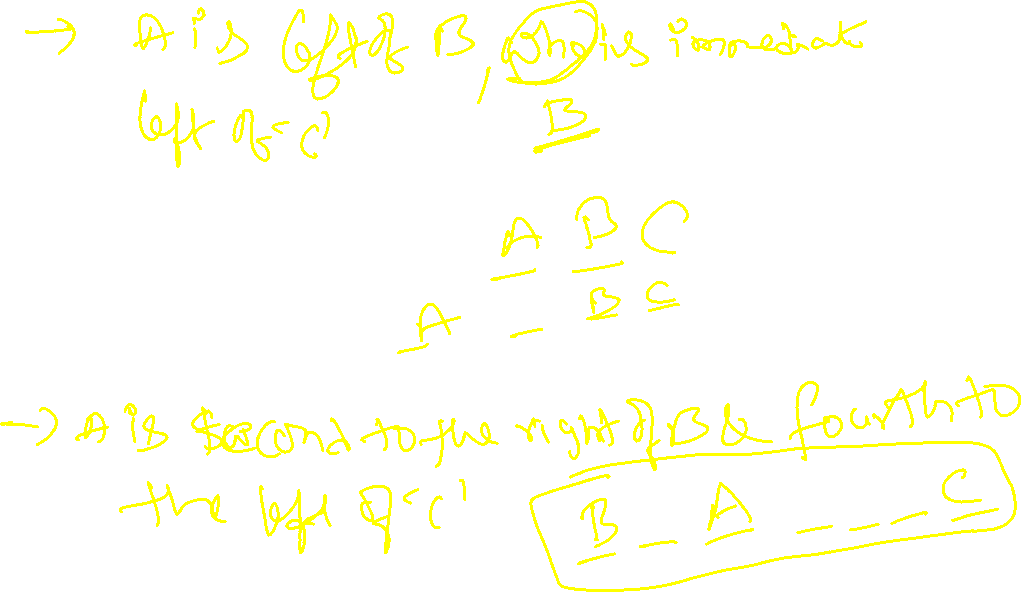 → A is left of B, who is immediate
left of 'C'
B
A B C
A _ B C
→ A is second to the right of B & fourth to
the left of 'C'
B _ A _ _ _ C